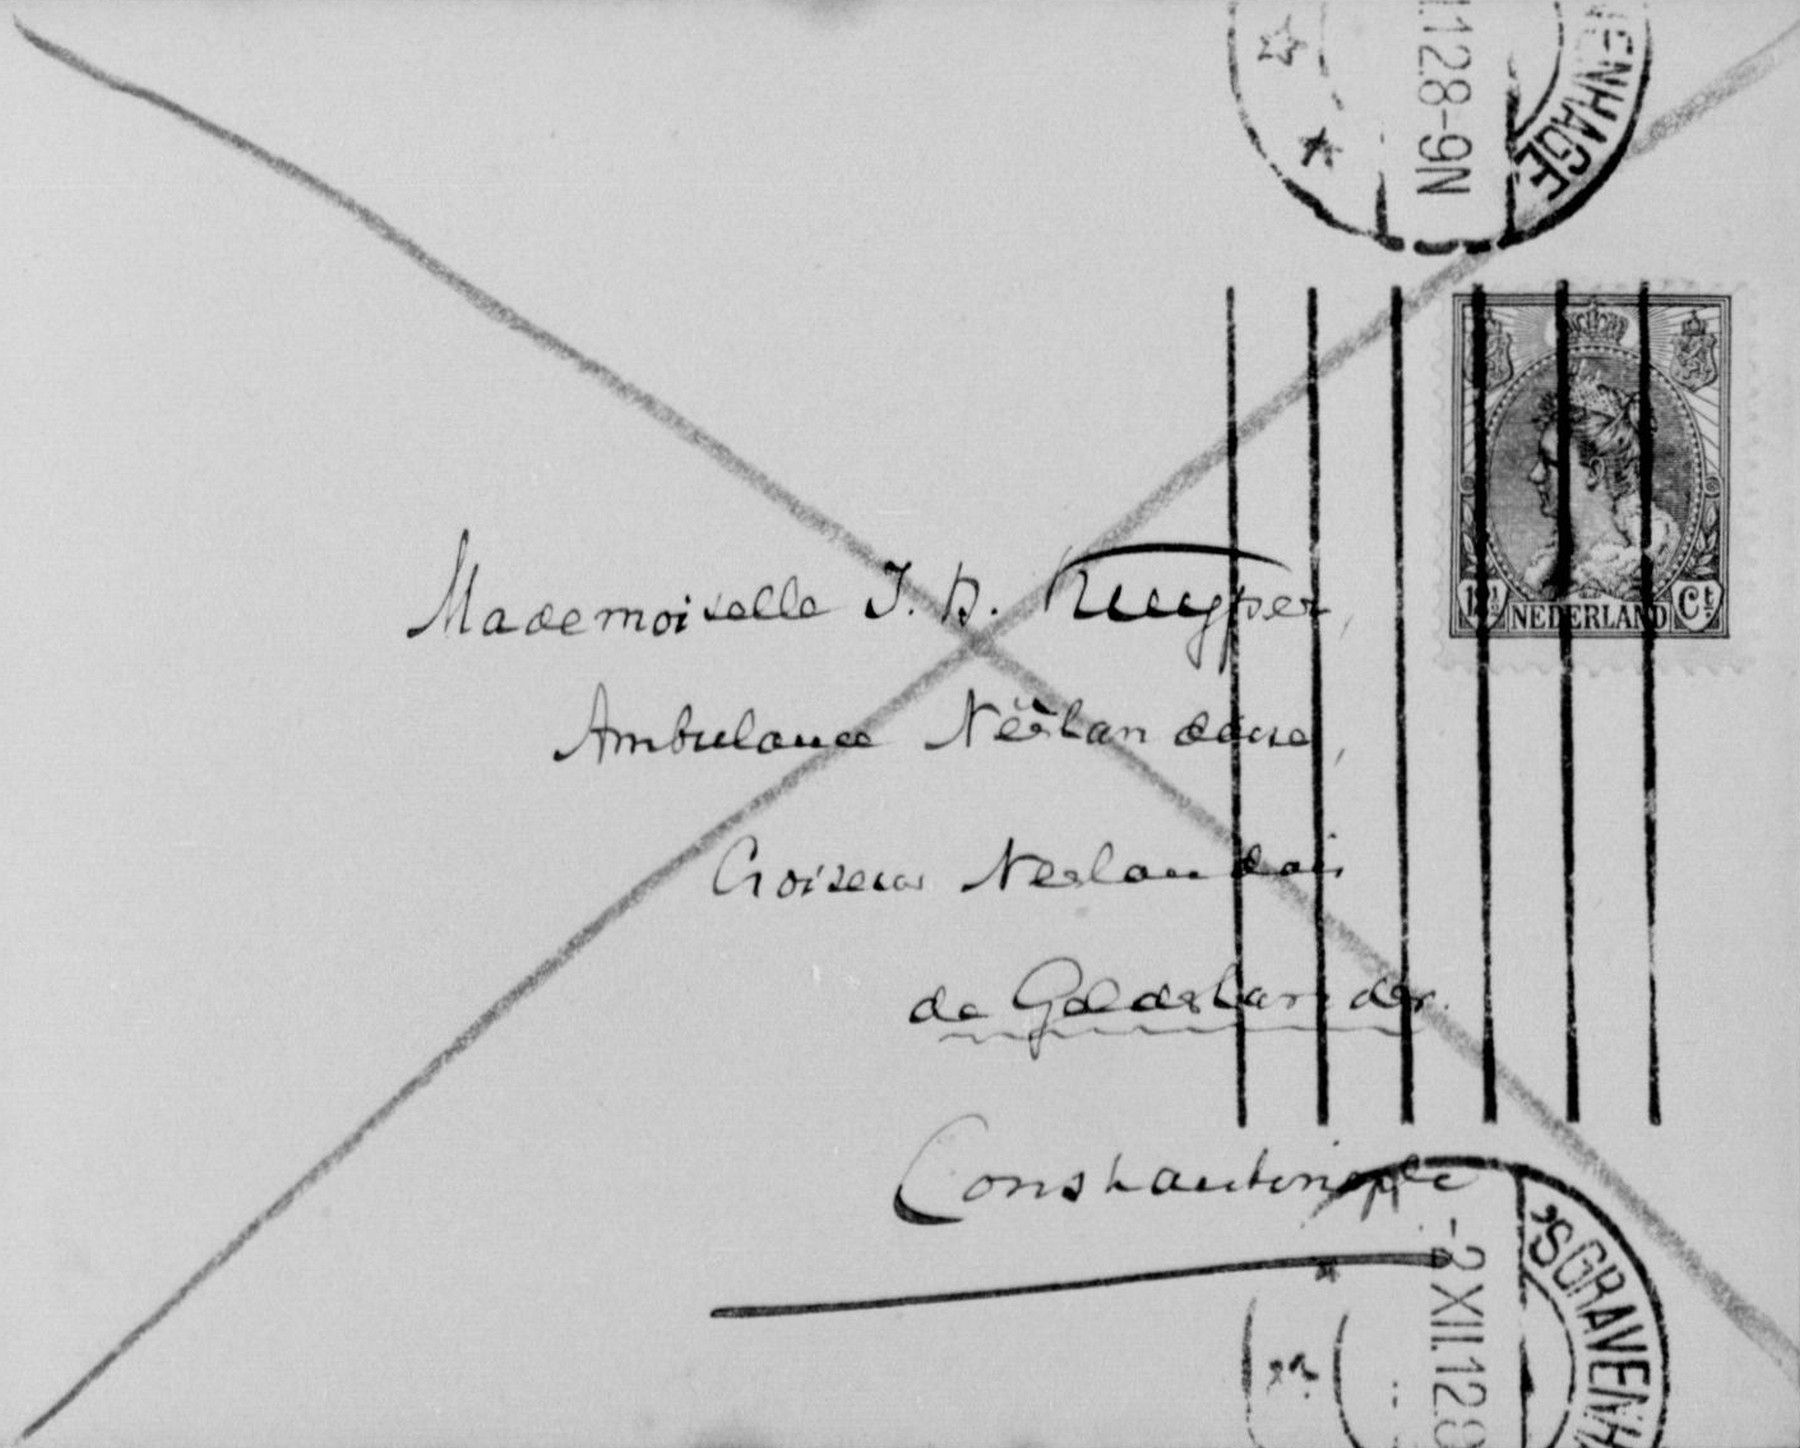 ENHAGE
.12.8-9N
12½ NEDERLAND Ct
Mademoiselle J. H. Kuyper,
Ambulance Néerlandaise,
Croiseur Neerlandais
de Gelderlander.
Constantinople
-2 XII.12.8
'SGRAVENH